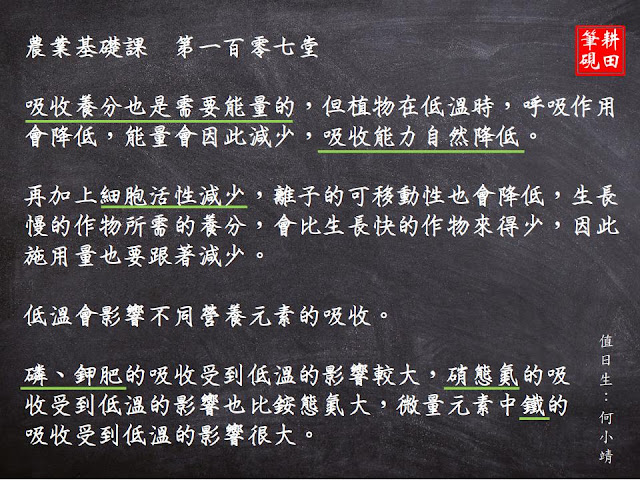 農業基礎課　第一百零七堂
筆硯
耕田
吸收養分也是需要能量的，但植物在低溫時，呼吸作用
會降低，能量會因此減少，吸收能力自然降低。
再加上細胞活性減少，離子的可移動性也會降低，生長
慢的作物所需的養分，會比生長快的作物來得少，因此
施用量也要跟著減少。
低溫會影響不同營養元素的吸收。
磷、鉀肥的吸收受到低溫的影響較大，硝態氮的吸
收受到低溫的影響也比銨態氮大，微量元素中鐵的
吸收受到低溫的影響很大。
值日生：何小靖